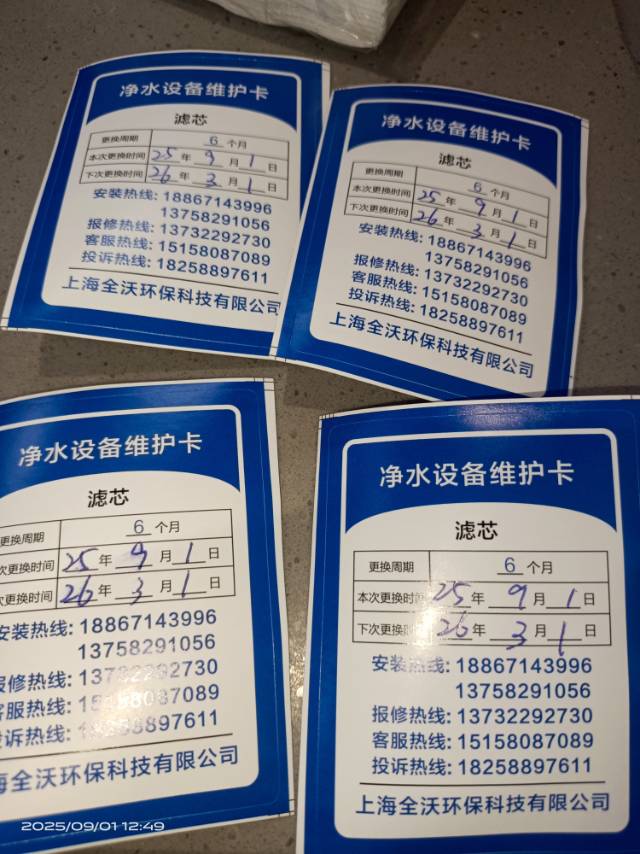 净水设备维护卡
滤芯
更换周期 6 个月
本次更换时间 25 年 9 月 1 日
下次更换时间 26 年 3 月 1 日
安装热线: 18867143996
13758291056
报修热线: 13732292730
客服热线: 15158087089
投诉热线: 18258897611
上海全沃环保科技有限公司
净水设备维护卡
滤芯
更换周期 6 个月
本次更换时间 25 年 9 月 1 日
下次更换时间 26 年 3 月 1 日
安装热线: 18867143996
13758291056
报修热线: 13732292730
客服热线: 15158087089
投诉热线: 18258897611
上海全沃环保科技有限公司
净水设备维护卡
滤芯
更换周期 6 个月
次更换时间 25 年 9 月 1 日
次更换时间 26 年 3 月 1 日
安装热线: 18867143996
13758291056
报修热线: 13732292730
客服热线: 15158087089
投诉热线: 18258897611
海全沃环保科技有限公司
净水设备维护卡
滤芯
更换周期 6 个月
本次更换时间 25 年 9 月 1 日
下次更换时 26 年 3 月 1 日
安装热线: 18867143996
13758291056
报修热线: 13732292730
客服热线: 15158087089
投诉热线: 18258897611
上海全沃环保科技有限公司
2025/09/01 12:49